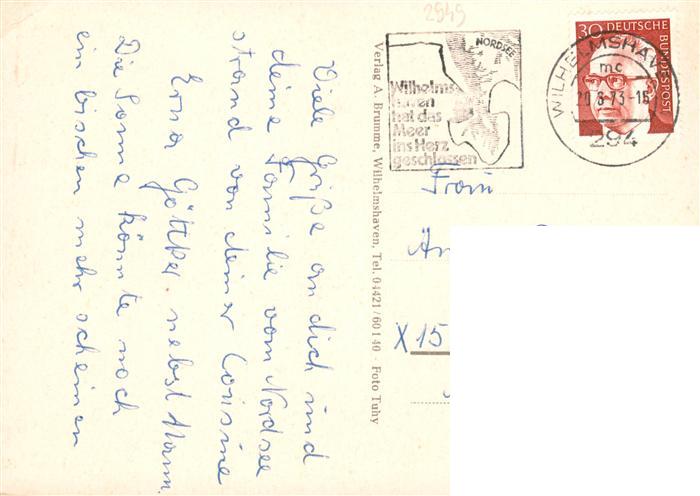 2949
Viele Grüße an dich und
deine Familie vom Nordsee
strand von deiner Cousine
Erna Göttker nebst Mann.
Die Sonne könnte noch
ein bischen mehr scheinen
Verlag A. Brumme, Wilhelmshaven, Tel. 04421/60140 · Foto Tuhy
NORDSEE
Wilhelms-
haven
hat das
Meer
ins Herz
geschlossen
30 DEUTSCHE
BUNDESPOST
WILHELMSHAVEN
mc
20.6.73-15
294
Frau
X15